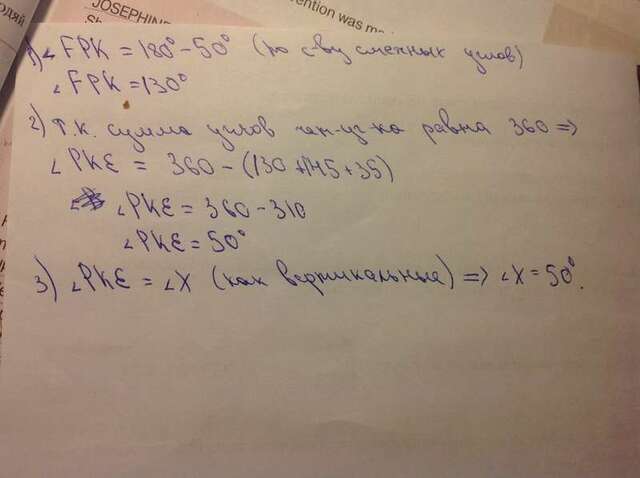 ОДЯЙ
JOSEPHINE
vention was
1) ∠FPK = 180° - 50° (по св-ву смежных углов)
∠FPK = 130°
2) Т.к. сумма углов чет-уг-ка равна 360 =>
∠PKE = 360 - (130 + 145 + 35)
∠PKE = 360 - 310
∠PKE = 50°
3) ∠PKE = ∠X (как вертикальные) => ∠X = 50°.